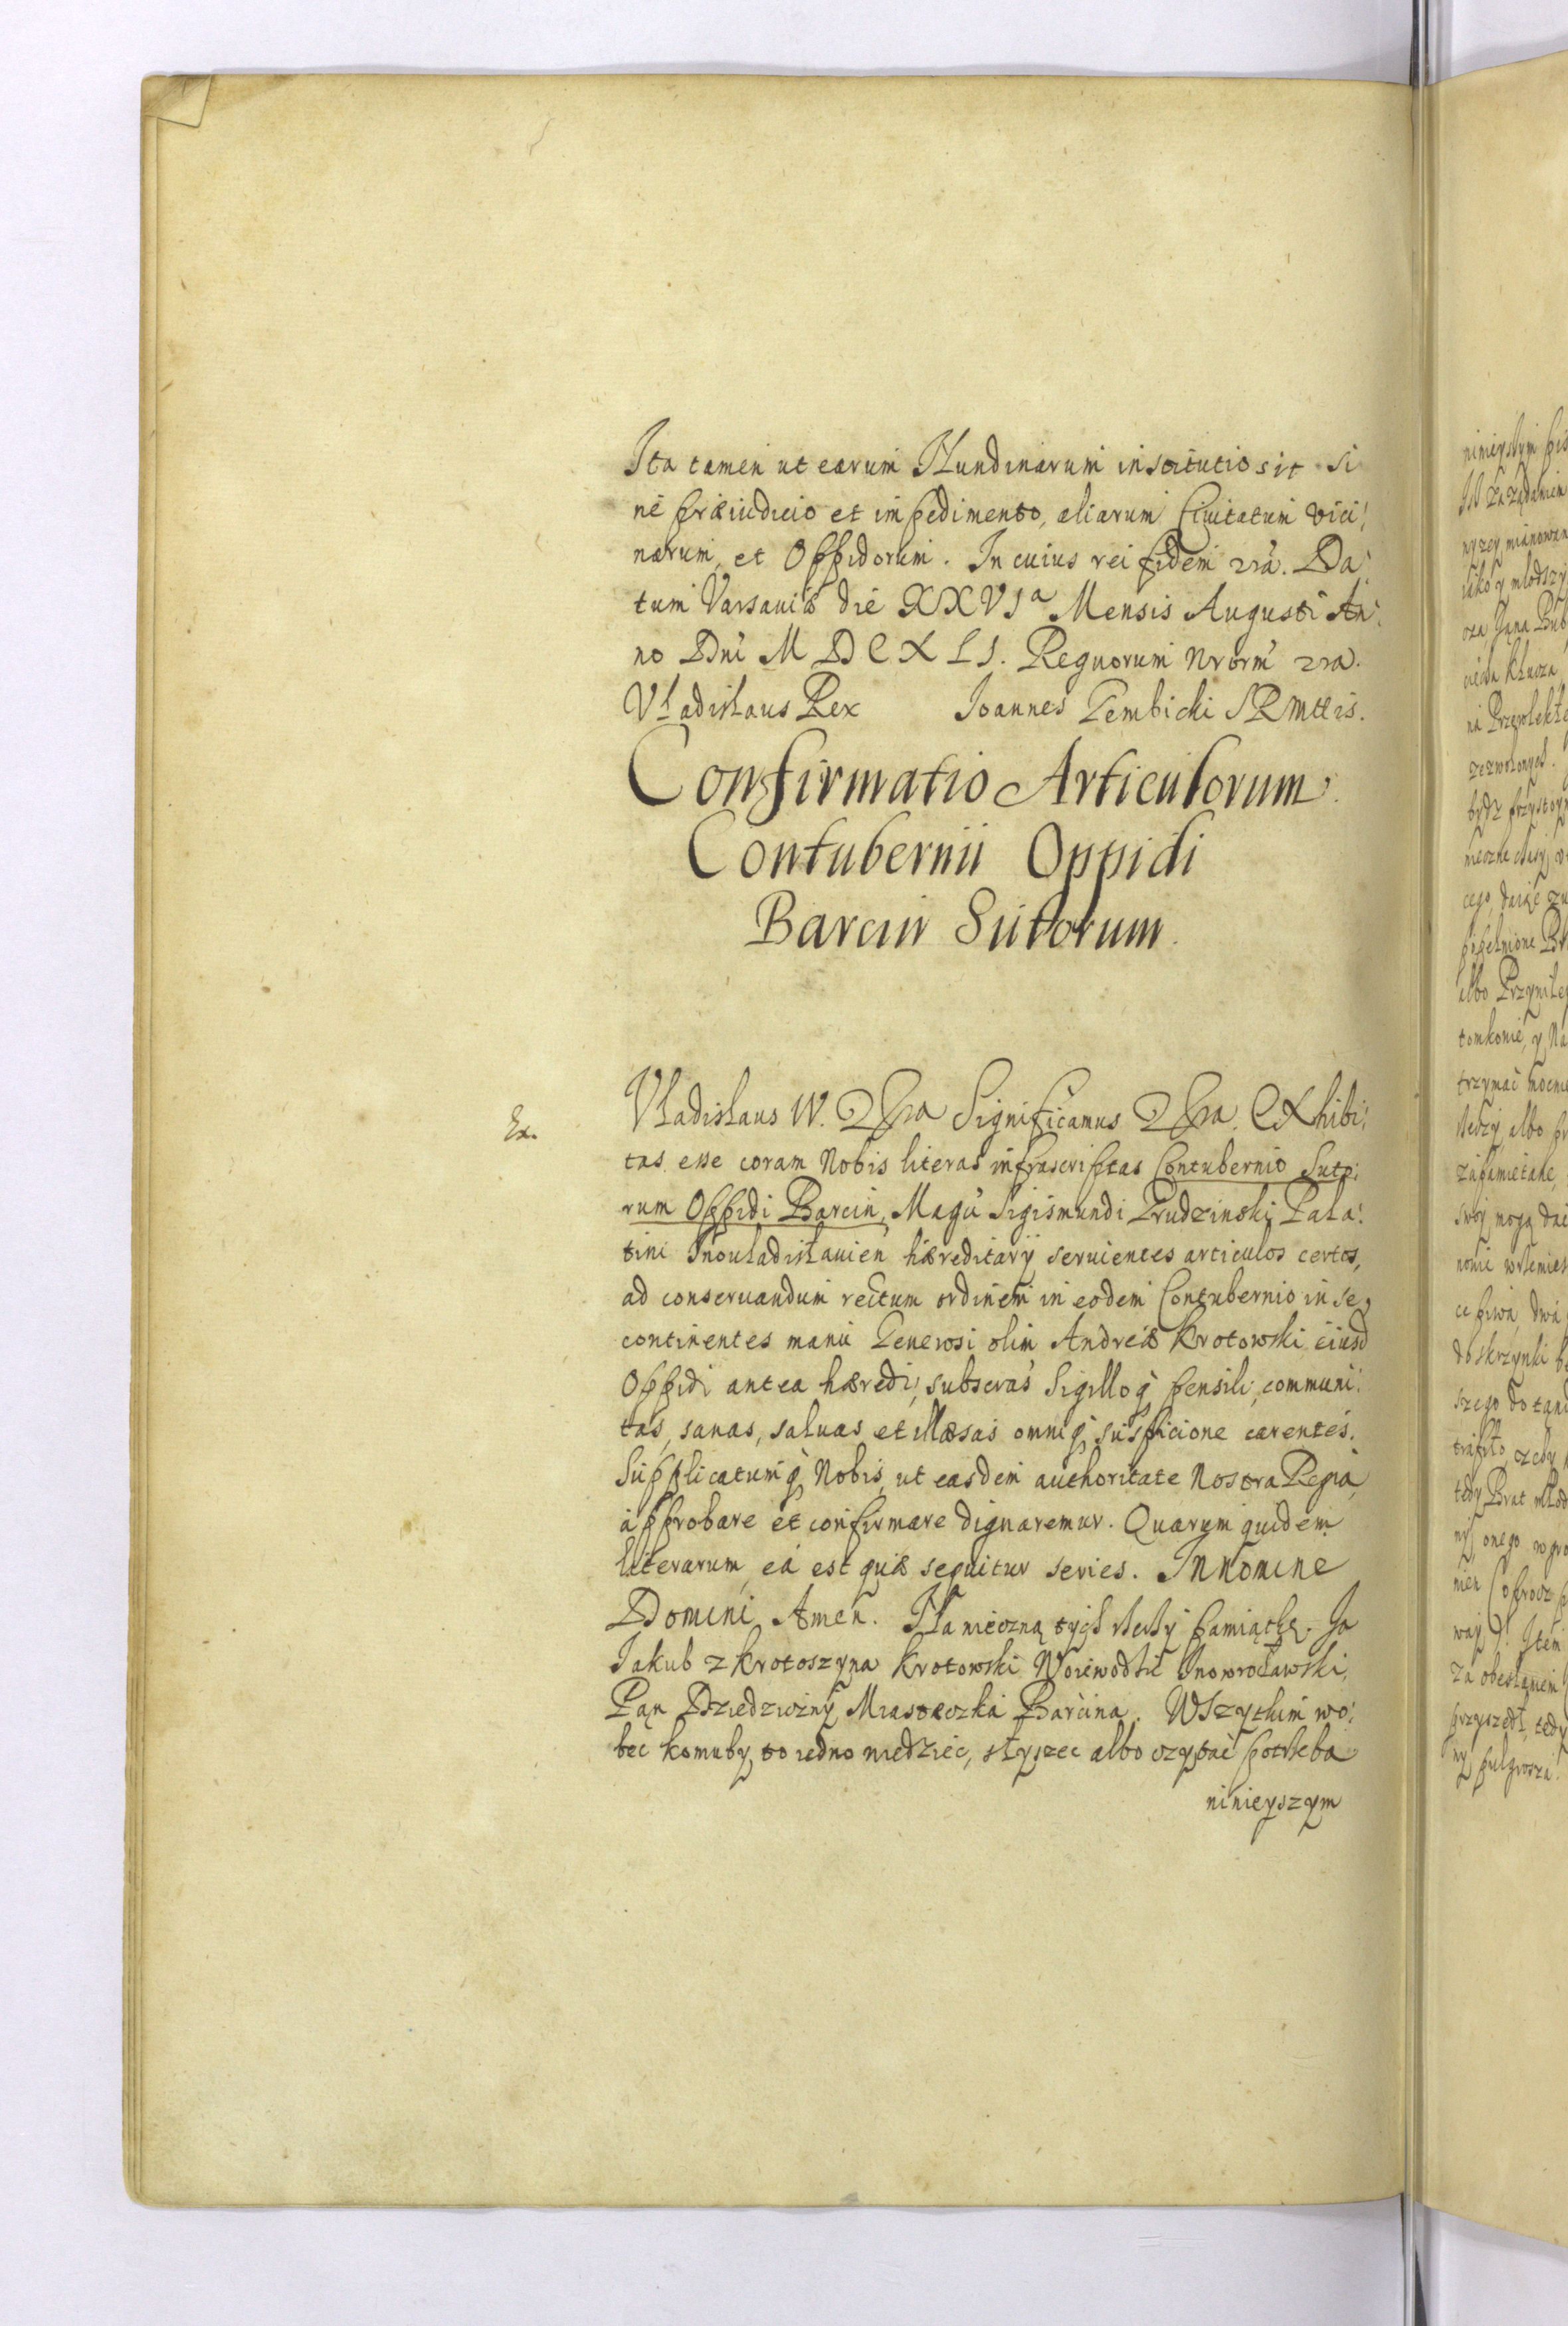 Ita tamen ut earum Nundinarum institutio sit si
ne præiudicio et impedimento, aliarum Ciuitatum vici:
narum, et Oppidorum. In cuius rei fidem &ra. Da:
tum Varsauiæ die XXVIa Mensis Augusti An:
no Dni M D C X L I. Regnorum Nrorm &ra.
Vladislaus Rex Joannes Gembicki SRMttis.
Confirmatio Articulorum
Contubernii Oppidi
Barcin Sutorum.
Ex.
Vladislaus IV. &ra Significamus &ra. Exhibi:
tas esse coram Nobis literas infrascriptas Contubernio Suto:
rum Oppidi Barcin, Magci Sigismundi Grudzinski Pala:
tini Inouladislauien hæreditarÿ seruientes articulos certos,
ad conseruandum rectum ordinem in eodem Contubernio in se,
continentes manu Generosi olim Andreæ Krotowski eiusd
Oppidi antea hæredi, subscras Sigilloq pensili, communi:
tas, sanas, saluas, et illæsas omniq suspicione carentes.
Supplicatumq Nobis, ut easdem authoritate Nostra Regia,
approbare et confirmare dignaremur. Quarum quidem
literarum, ea est quæ sequitur series. In Nomine
Domini Amen. Na wieczną tych rzeczÿ pamiątkę. Ja
Jakub z Krotoszyna Krotowski Woiewodzic Inowrocławski,
Pan Dziedziczny Miasteczka Barcina. Wszytkim wo:
bec komuby, to iedno wiedziec, słyszec albo czytac potrzeba
ninieyszym